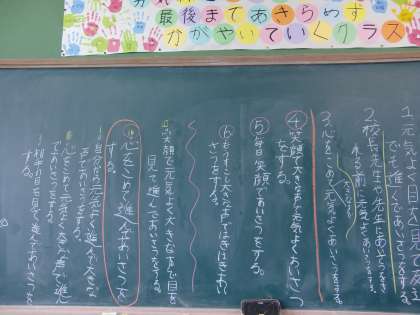 最後まであきらめず
かがやいていくクラス
1.元気よく目を見て
でも進んであいさつをする。
2.校長先生や先生にあったとき
来る前に元気よくあいさつをする。
3.心をこめて元気よくあいさつをする。
④笑顔で大きな声で元気よくあいさつ
をする。
⑤毎日笑顔であいさつをする。
⑥もうすこし大きな声で
さつをする。
笑顔で元気よく大きな声で目を
見て進んであいさつをする。
心をこめて進んであいさつを
する。
自分から元気よく進んで大きな
声であいさつをする。
心をこめて元気よく笑顔で進ん
であいさつをする。
相手の目を見て進んであいさつを
する。